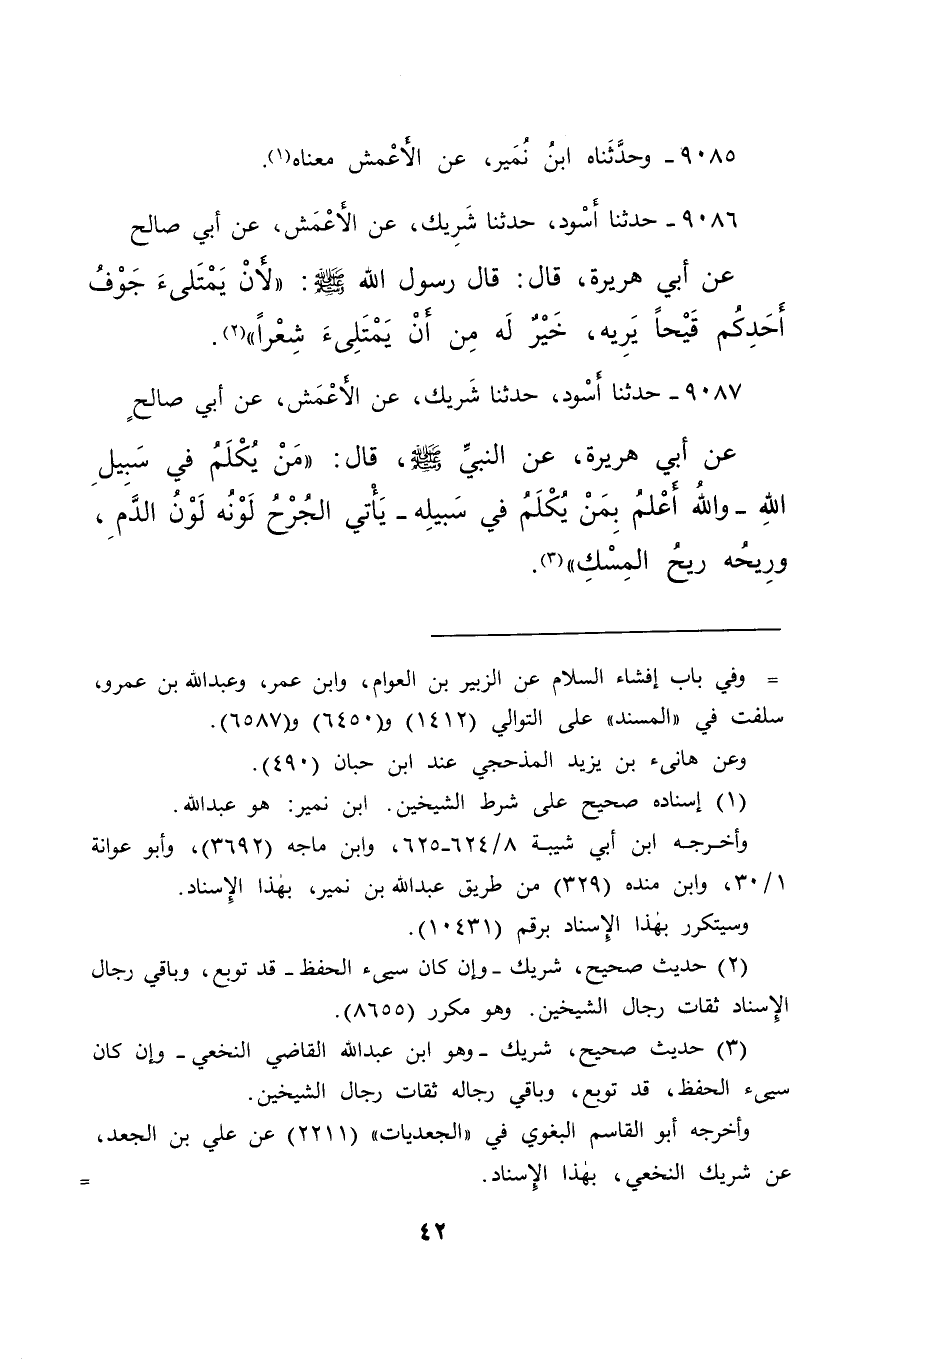 ٩٠٨٥ـ وحدَّثَناه ابنُ نُمَير، عن الأَعْمش معناه(١).
٩٠٨٦ـ حدثنا أَسْود، حدثنا شَرِيك، عن الأَعْمَش، عن أبي صالح
عن أبي هريرة، قال: قال رسول الله ﷺ: «لَأَنْ يَمْتَلىءَ جَوْفُ
أَحَدِكُم قَيْحاً يَرِيه، خَيْرٌ لَه مِن أَنْ يَمْتَلِىءَ شِعْراً»(٢).
٩٠٨٧ـ حدثنا أَسْود، حدثنا شَرِيك، عن الأَعْمَش، عن أبي صالحٍ
عن أبي هريرة، عن النبيِّ ﷺ، قال: «مَنْ يُكْلَمُ في سَبِيلِ
اللهِ ـ واللهُ أَعْلمُ بِمَنْ يُكْلَمُ في سَبيلِه ـ يَأْتي الجُرْحُ لَوْنُه لَوْنُ الدَّمِ،
ورِيحُه ريحُ المِسْكِ»(٣).
= وفي باب إفشاء السلام عن الزبير بن العوام، وابن عمر، وعبدالله بن عمرو،
سلفت في «المسند» على التوالي (١٤١٢) و(٦٤٥٠) و(٦٥٨٧).
وعن هانىء بن يزيد المذحجي عند ابن حبان (٤٩٠).
(١) إسناده صحيح على شرط الشيخين. ابن نمير: هو عبدالله.
وأخرجه ابن أبي شيبة ٨/ ٦٢٤ـ٦٢٥، وابن ماجه (٣٦٩٢)، وأبو عوانة
١/ ٣٠، وابن منده (٣٢٩) من طريق عبدالله بن نمير، بهٰذا الإِسناد.
وسيتكرر بهٰذا الإِسناد برقم (١٠٤٣١).
(٢) حديث صحيح، شريك ـ وإن كان سيىء الحفظ ـ قد توبع، وباقي رجال
الإِسناد ثقات رجال الشيخين. وهو مكرر (٨٦٥٥).
(٣) حديث صحيح، شريك ـ وهو ابن عبدالله القاضي النخعي ـ وإن كان
سيىء الحفظ، قد توبع، وباقي رجاله ثقات رجال الشيخين.
وأخرجه أبو القاسم البغوي في «الجعديات» (٢٢١١) عن علي بن الجعد،
عن شريك النخعي، بهٰذا الإِسناد. =
٤٢